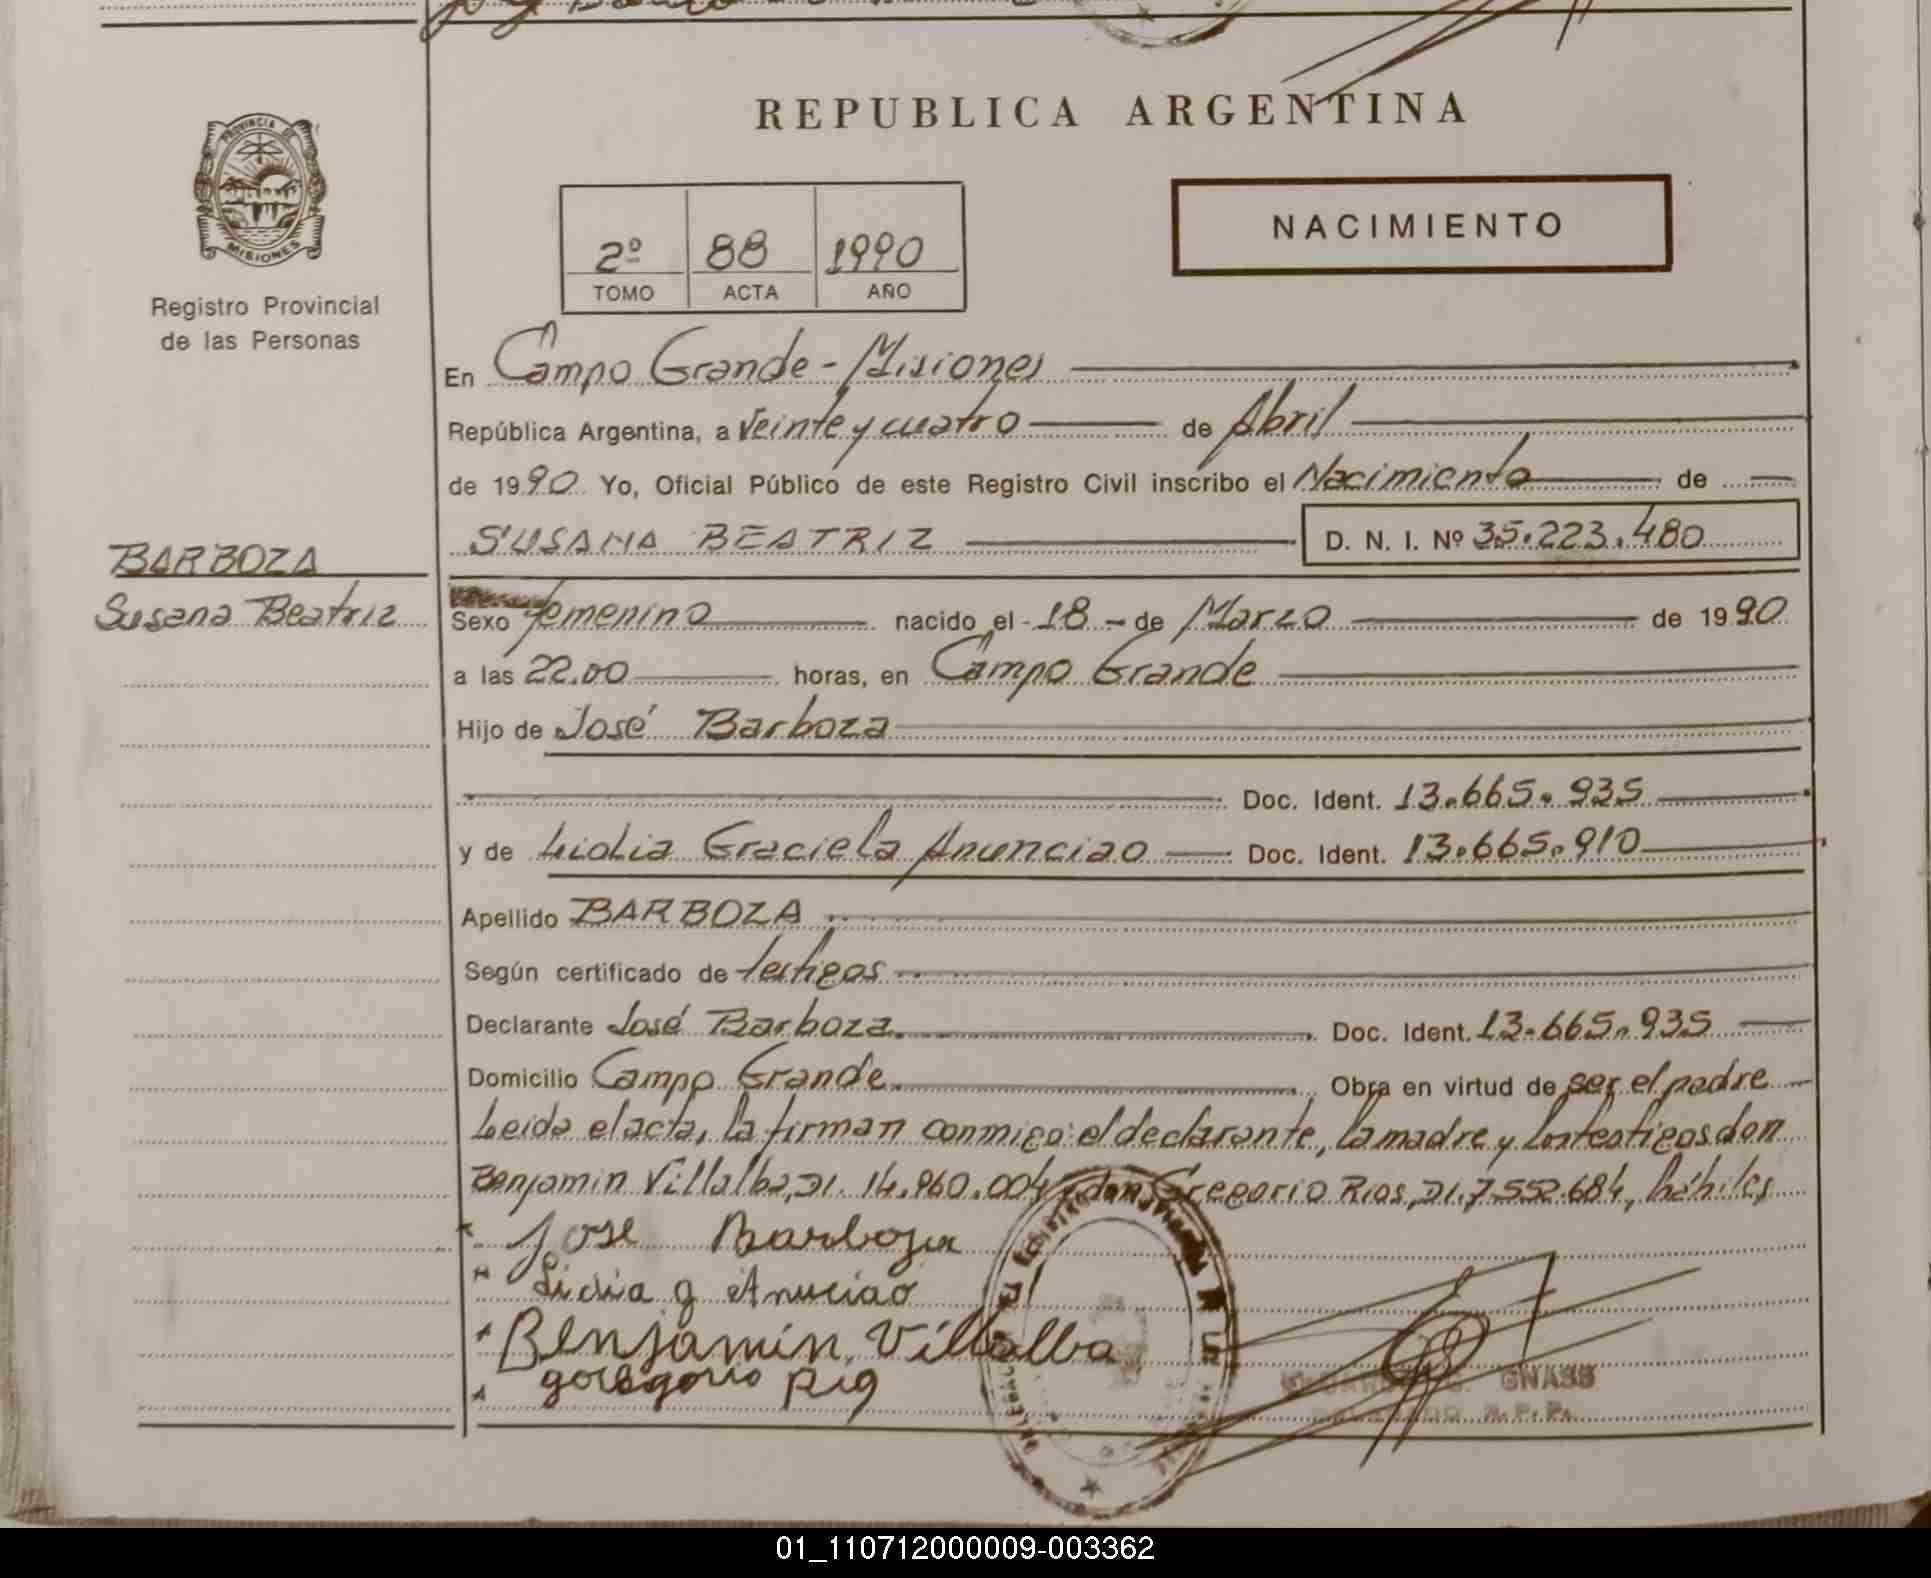 REPUBLICA ARGENTINA
PROVINCIA DE
MISIONES
Registro Provincial
de las Personas
2º 88 1990
TOMO ACTA AÑO
NACIMIENTO
En Campo Grande - Misiones
República Argentina, a Veinte y cuatro de Abril
de 1990 Yo, Oficial Público de este Registro Civil inscribo el Nacimiento de
SUSANA BEATRIZ D. N. I. Nº 35.223.480
BARBOZA
Susana Beatriz
Sexo femenino nacido el - 18 - de Marzo de 1990
a las 22.00 horas, en Campo Grande
Hijo de José Barboza
Doc. Ident. 13.665.935
y de Lidia Graciela Anunciao Doc. Ident. 13.665.910
Apellido BARBOZA
Según certificado de testigos
Declarante José Barboza Doc. Ident. 13.665.935
Domicilio Campo Grande Obra en virtud de ser el padre
Leida el acta, la firman conmigo el declarante, la madre y los testigos don
Benjamin Villalba, DI. 14.960.004 y don Gregorio Rios, DI. 7.552.684, hábiles
Jose Barboza
Lidia g Anuciao
Benjamín Villalba
goregorio Rig
GNASS
R.P.P.
01_110712000009-003362